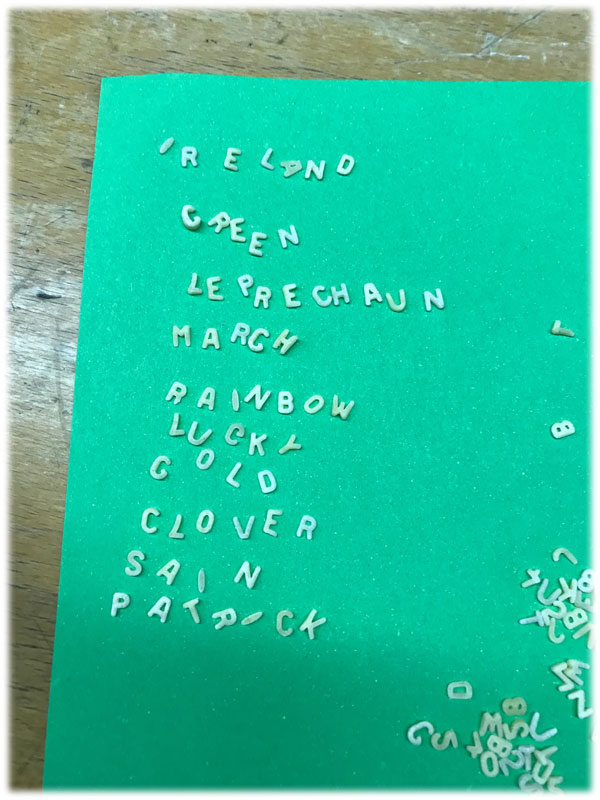 IRELAND
GREEN
LEPRECHAUN
MARCH
RAINBOW
LUCKY
GOLD
CLOVER
SAIN
PATRICK